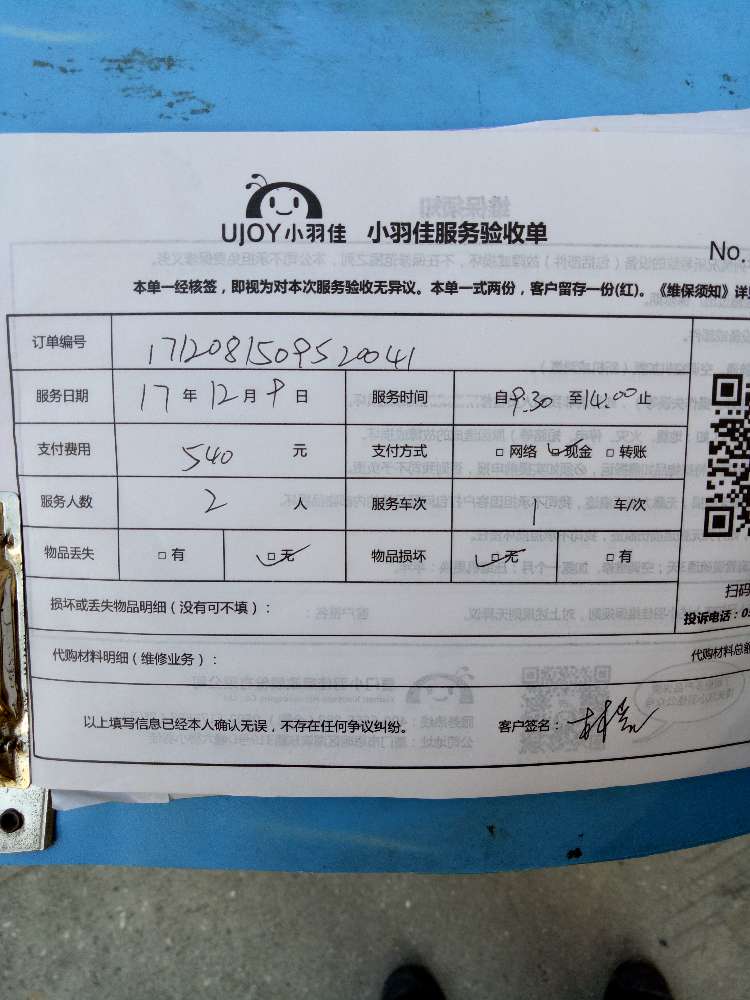 UJOY小羽佳 小羽佳服务验收单
No.
本单一经核签，即视为对本次服务验收无异议。本单一式两份，客户留存一份(红)。《维保须知》详
订单编号 1712081509520041
服务日期 17 年 12 月 9 日 服务时间 自9.30 至14.00止
支付费用 540 元 支付方式 □ 网络 □ 现金 □ 转账
服务人数 2 人 服务车次 1 车/次
物品丢失 □ 有 □ 无 物品损坏 □ 无 □ 有
扫码
损坏或丢失物品明细（没有可不填）：
投诉电话：05
代购材料明细（维修业务）：
代购材料总额
以上填写信息已经本人确认无误，不存在任何争议纠纷。 客户签名：